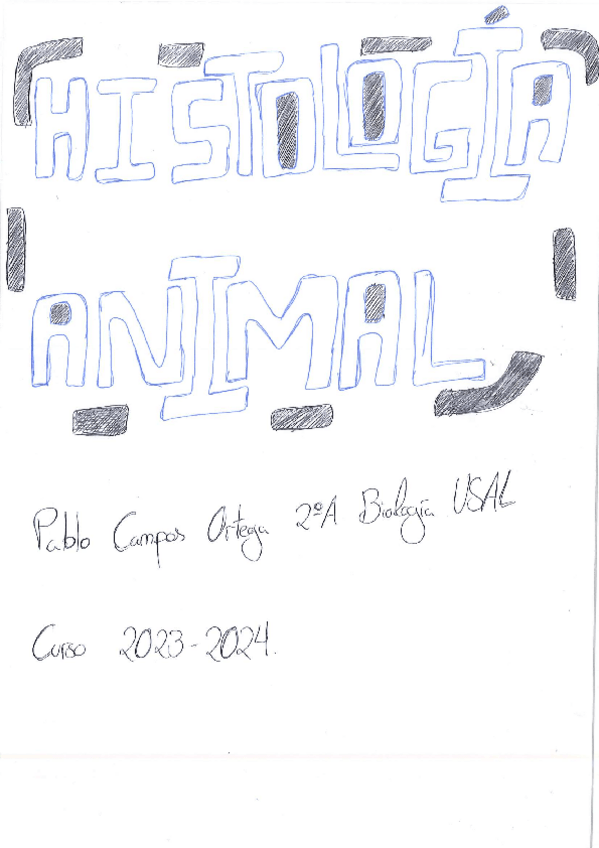 HISTOLOGÍA
ANIMAL
Pablo Campos Ortega 2ºA Biología USAL
Curso 2023-2024.